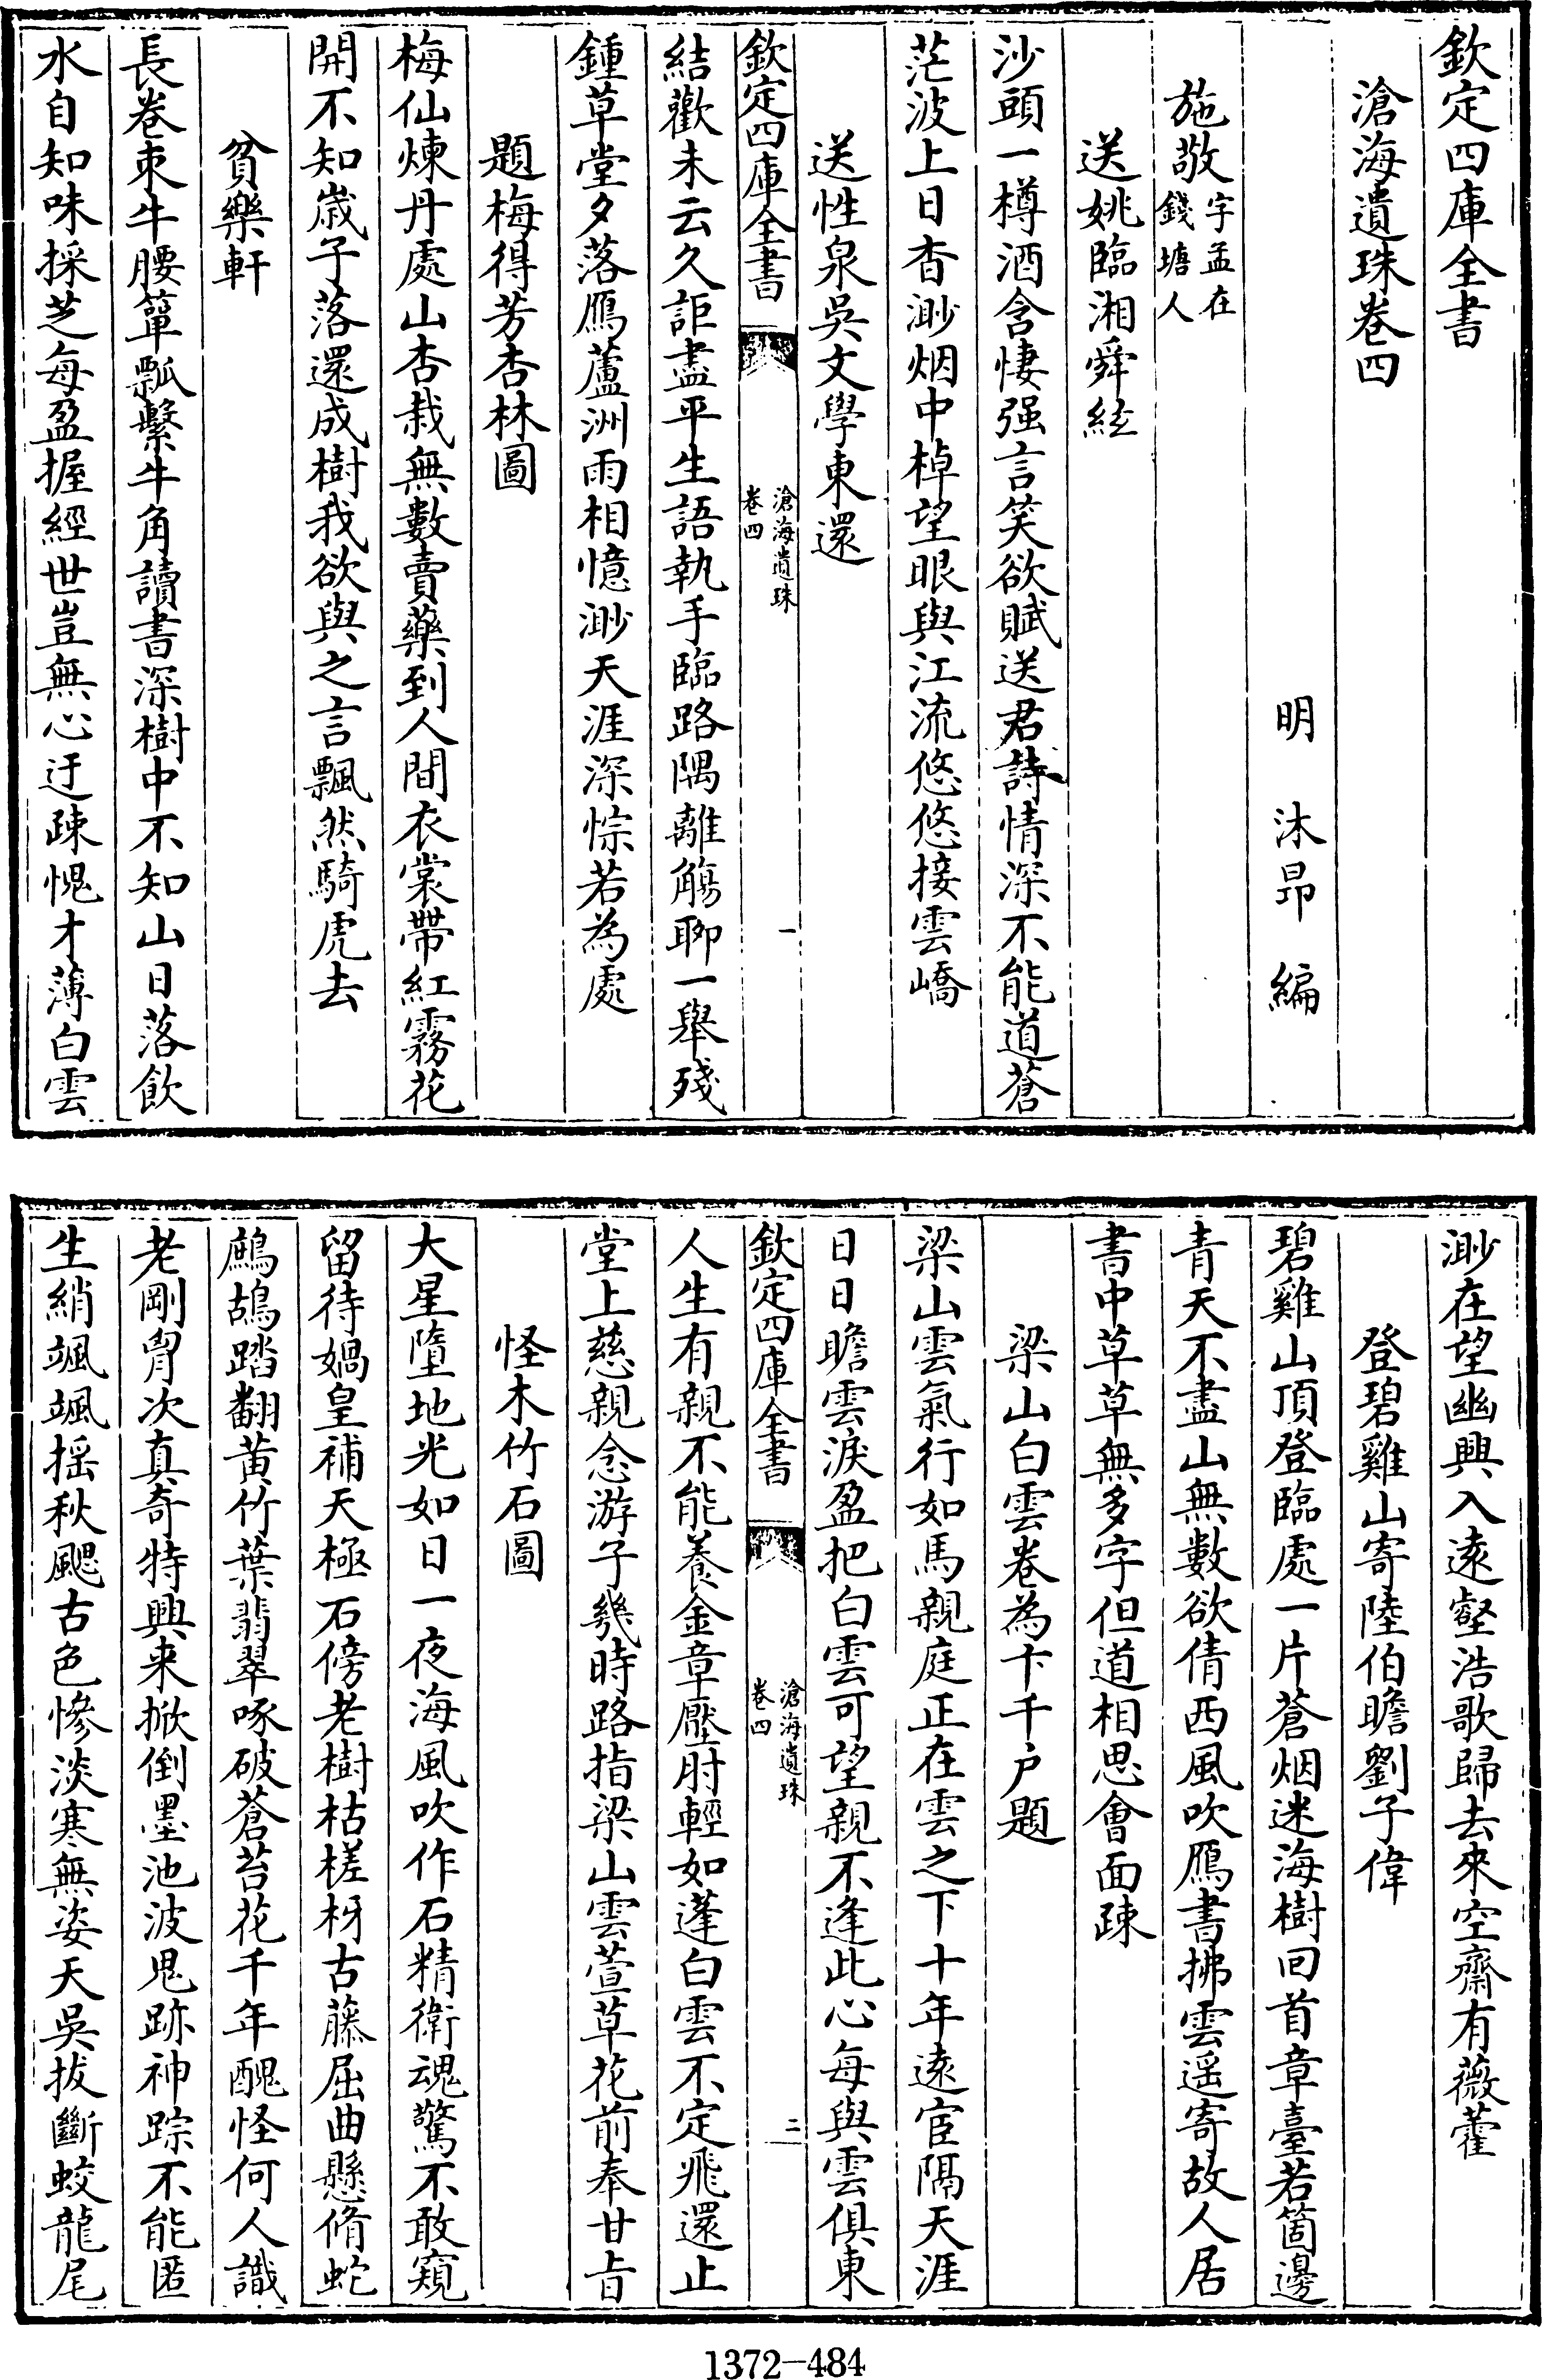 欽定四庫全書
滄海遺珠卷四
明 沐昂 編
施敬字孟在錢塘人
送姚臨湘舜絃
沙頭一樽酒含悽强言笑欲賦送君詩情深不能道蒼
茫波上日杳渺烟中棹望眼與江流悠悠接雲嶠
送性泉吳文學東還
欽定四庫全書
滄海遺珠
卷四
一
結歡未云久詎盡平生語執手臨路隅離觴聊一舉殘
鍾草堂夕落鴈蘆洲雨相憶渺天涯深悰若為處
題梅得芳杏林圖
梅仙煉丹處山杏栽無數賣藥到人間衣裳帶紅霧花
開不知嵗子落還成樹我欲與之言飄然騎虎去
貧樂軒
長卷束牛腰簞瓢繫牛角讀書深樹中不知山日落飲
水自知味採芝每盈握經世豈無心迂疎愧才薄白雲
渺在望幽興入遠壑浩歌歸去來空齋有薇藿
登碧雞山寄陸伯瞻劉子偉
碧雞山頂登臨處一片蒼烟迷海樹回首章臺若箇邊
青天不盡山無數欲倩西風吹鴈書拂雲遥寄故人居
書中草草無多字但道相思會面疎
梁山白雲卷為卞千户題
梁山雲氣行如馬親庭正在雲之下十年遠宦隔天涯
日日瞻雲淚盈把白雲可望親不逢此心每與雲俱東
欽定四庫全書
滄海遺珠
卷四
二
人生有親不能養金章壓肘輕如蓬白雲不定飛還止
堂上慈親念游子幾時路指梁山雲萱草花前奉甘旨
怪木竹石圖
大星墮地光如日一夜海風吹作石精衛魂驚不敢窺
留待媧皇補天極石傍老樹枯槎枒古藤屈曲懸脩蛇
鷓鴣踏翻黄竹葉翡翠啄破蒼苔花千年醜怪何人識
老剛胷次真奇特興来掀倒墨池波鬼跡神踪不能匿
生綃颯颯摇秋颸古色慘淡寒無姿天吳拔斷蛟龍尾
1372-484